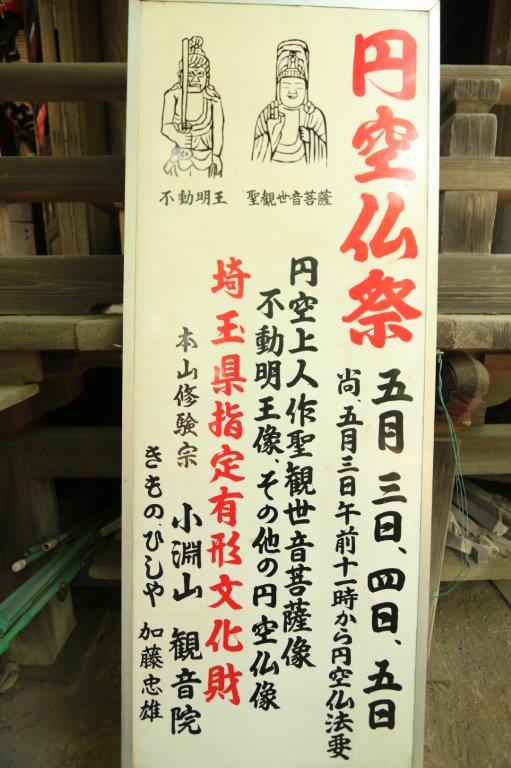 円空仏祭
五月三日、四日、五日
尚、五月三日午前十一時から円空仏法要
円空上人作聖観世音菩薩像
不動明王像、その他の円空仏像
埼玉県指定有形文化財
本山修験宗 小淵山 観音院
きもの、ひしや 加藤忠雄
聖観世音菩薩
不動明王